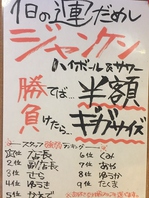 1日の運だめし
ジャンケン
ハイボール&サワー
勝てば…半額
負けたら…ギガサイズ
スタッフ ランキング
1位 店長
2位 副店長
3位 せら
4位 ゆうき
5位 かなで
6位 くみ
7位 あや
8位 ゆうか
9位 たくま